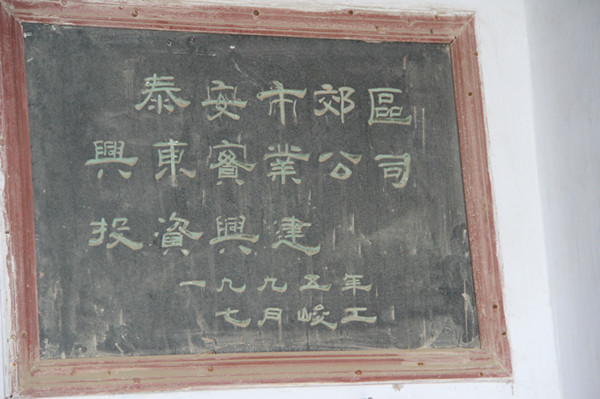 泰安市郊區
興東實業公司
投資興建
一九九五年
七月峻工